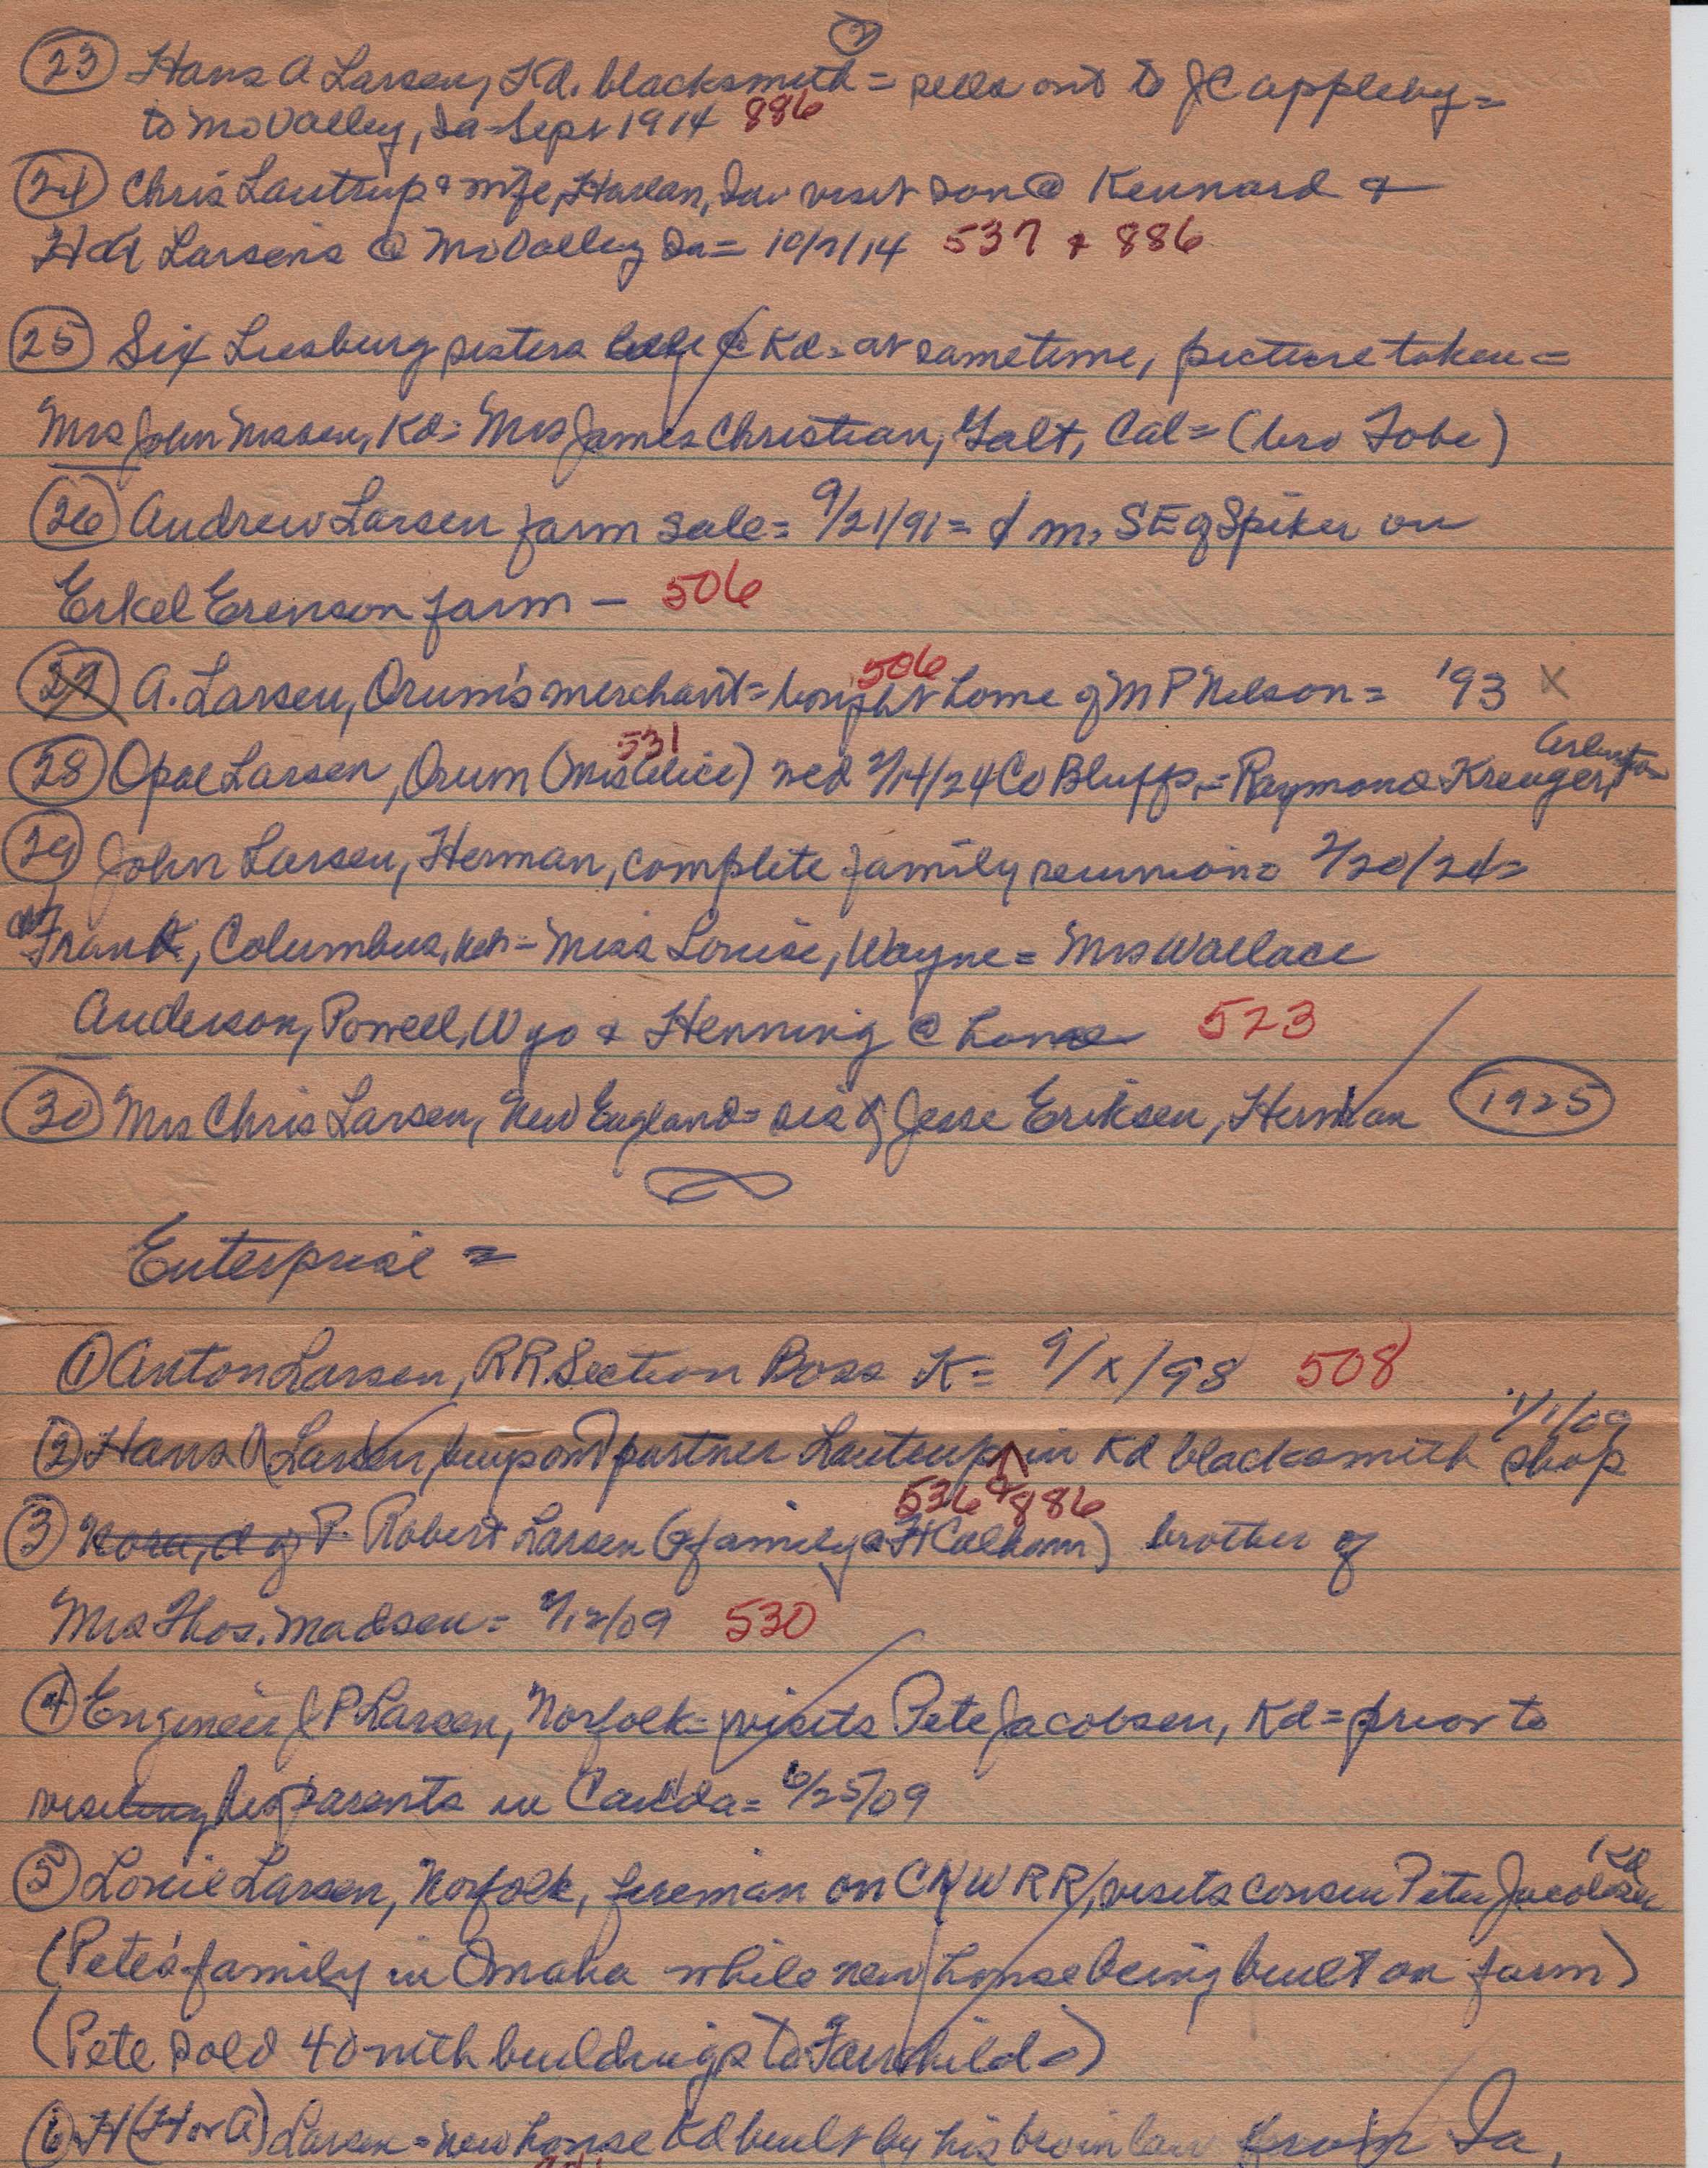 2
23 Hans A Larsen, Kd. blacksmith = sells out to JC Appleby =
to Mo Valley, Ia - Sept 1914 886
24 Chris Lautrup & wife, Harlan, Ia. visit son @ Kennard &
HA Larsens @ Mo Valley Ia = 10/2/14 537 & 886
25 Six Liesburg sisters @ Kd = at sametime, picture taken =
Mrs John Nissen, Kd = Mrs James Christian, Galt, Cal = (bro Tobe)
26 Andrew Larsen farm sale = 9/21/91 = 4 m. SE of Spiker on
Erkel Erenson farm - 506
27 A. Larsen, Orum's merchant = bought home of M P Nelson = '93 x
506
28 Opal Larsen, Orum (Mrs Alice) wed 2/14/24 Co Bluffs, = Raymond Kreuger, Arlington
531
29 John Larsen, Herman, complete family reunion = 2/20/24 =
Frank, Columbus, Neb = Miss Louise, Wayne = Mrs Wallace
Anderson, Powell, Wyo & Henning @ home 523
30 Mrs Chris Larsen, New England = sis of Jesse Eriksen, Herman 1925
Enterprise =
1 Anton Larsen, RR Section Boss K = 9/x/98 508
2 Hans A Larsen, buys out partner Lautrup in Kd blacksmith shop 1/1/09
536 & 886
3 Nora, d of P. Robert Larsen (& family @ Ft Calhoun) brother of
Mrs Thos. Madsen = 2/12/09 530
4 Engineer J P Larsen, Norfolk = visits Pete Jacobsen, Kd = prior to
visiting his parents in Canada = 6/25/09
5 Louie Larsen, Norfolk, fireman on CNW RR, visits cousin Peter Jacobsen Kd
(Pete's family in Omaha while new house being built on farm)
(Pete sold 40 with buildings to Fairchild =)
6 H (H or A) Larsen = new house Kd built by his bro in law from Ia,